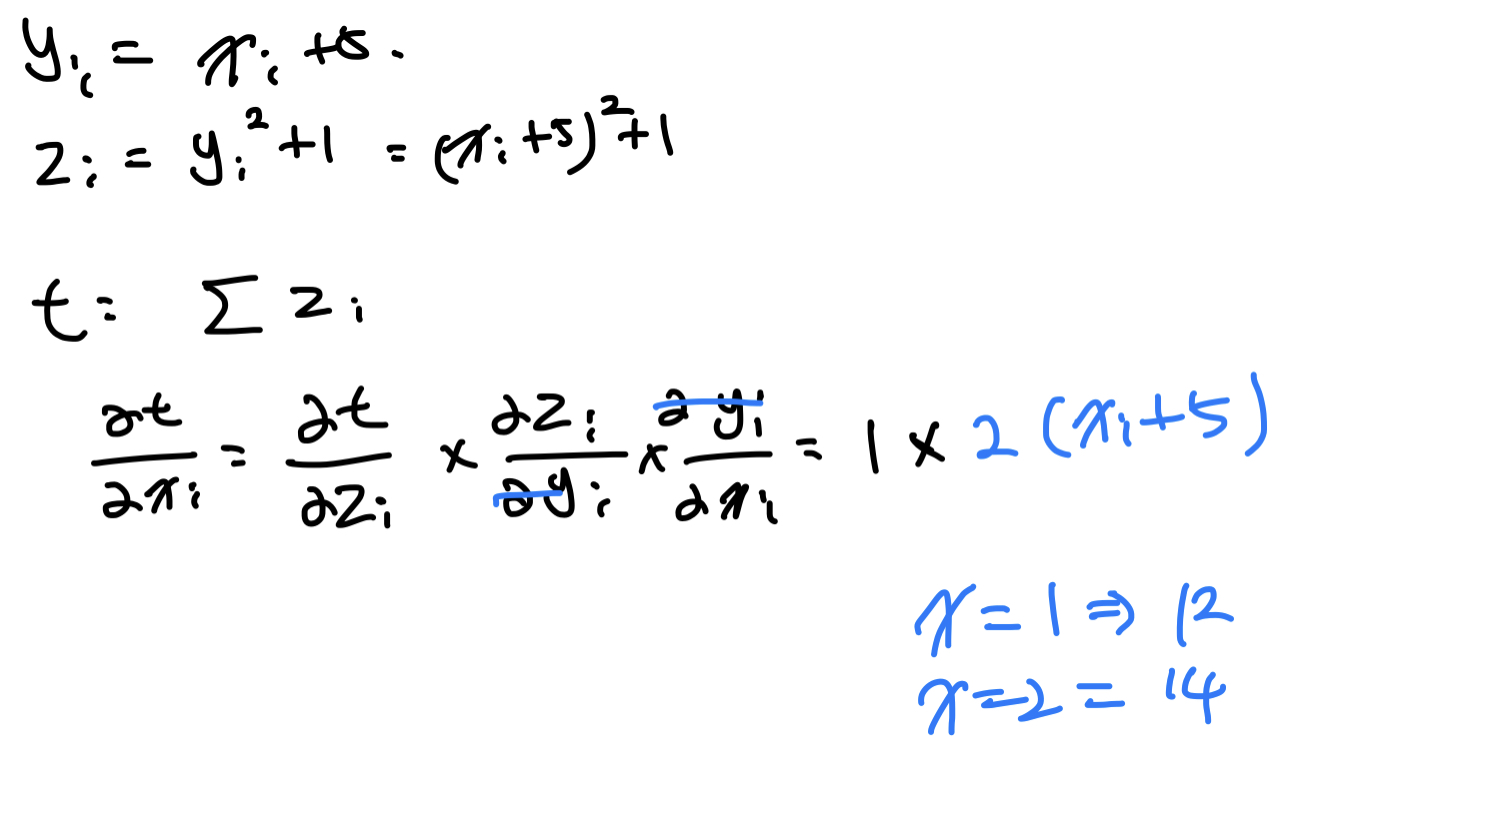 yᵢ = xᵢ +5.
zᵢ = yᵢ² +1 = (xᵢ +5)² +1
t = ∑ zᵢ
∂t/∂xᵢ = ∂t/∂zᵢ × ∂zᵢ/∂yᵢ × ∂yᵢ/∂xᵢ = 1 × 2(xᵢ+5)
x = 1 ⇒ 12
x = 2 = 14